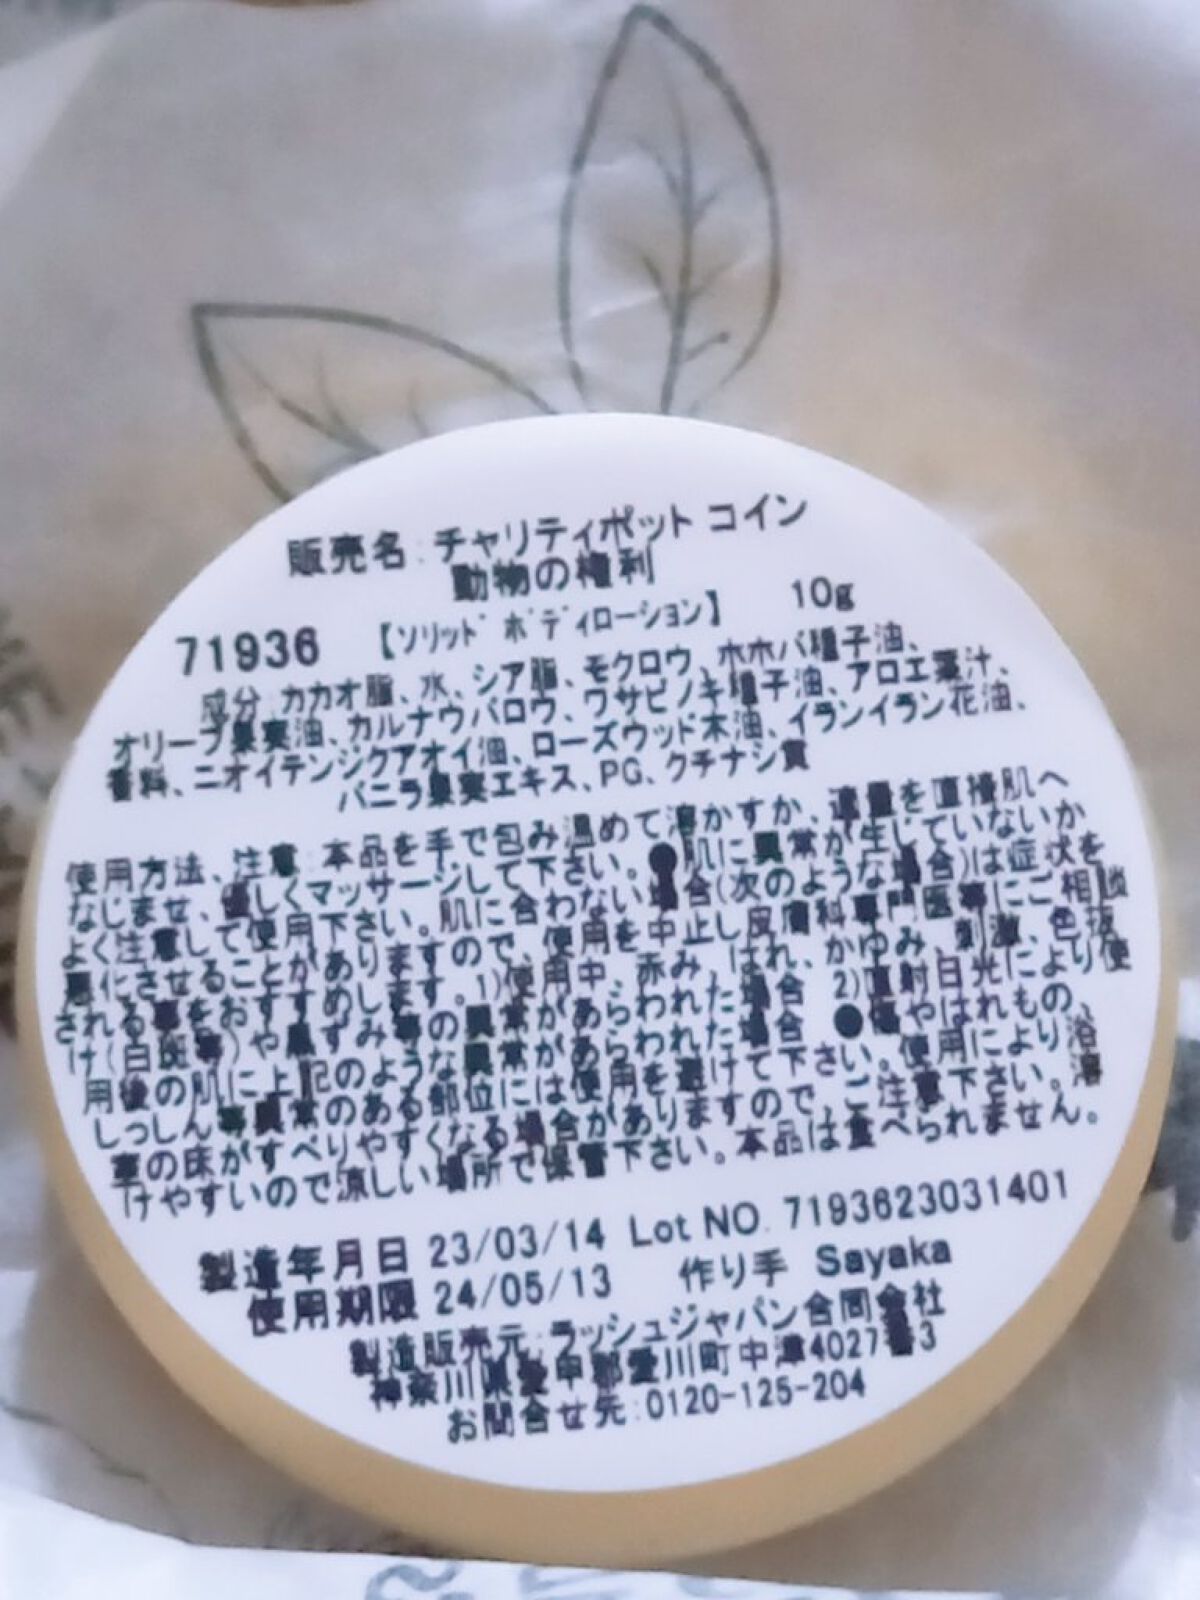 販売名:チャリティポット コイン
動物の権利
71936 【ソリッドボディローション】 10g
成分:カカオ脂、水、シア脂、モクロウ、ホホバ種子油、
オリーブ果実油、カルナウバロウ、ワサビノキ種子油、アロエ葉汁、
香料、ニオイテンジクアオイ油、ローズウッド木油、イランイラン花油、
バニラ果実エキス、PG、クチナシ黄
使用方法、注意:本品を手で包み温めて溶かすか、適量を直接肌へ
なじませ、優しくマッサージして下さい。●肌に異常が生じていないか
よく注意して使用下さい。肌に合わない場合(次のような場合)は症状を
悪化させることがありますので、使用を中止し皮膚科専門医等にご相談
される事をおすすめします。1)使用中、赤み、はれ、かゆみ、刺激、色抜
け(白斑等)や黒ずみ等の異常があらわれた場合 2)直射日光により使
用後の肌に上記のような異常があらわれた場合 ●傷やはれもの、
しっしん等異常のある部位には使用を避けて下さい。使用により浴
室の床がすべりやすくなる場合がありますので、ご注意下さい。溶
けやすいので涼しい場所で保管下さい。本品は食べられません。
製造年月日 23/03/14 Lot NO. 7193623031401
使用期限 24/05/13 作り手 Sayaka
製造販売元:ラッシュジャパン合同会社
神奈川県愛甲郡愛川町中津4027番3
お問合せ先:0120-125-204